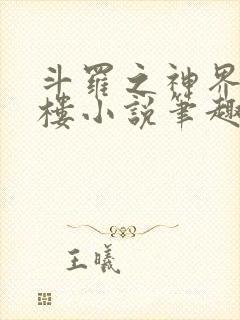 斗羅之神界
樓小說筆趣
王曦